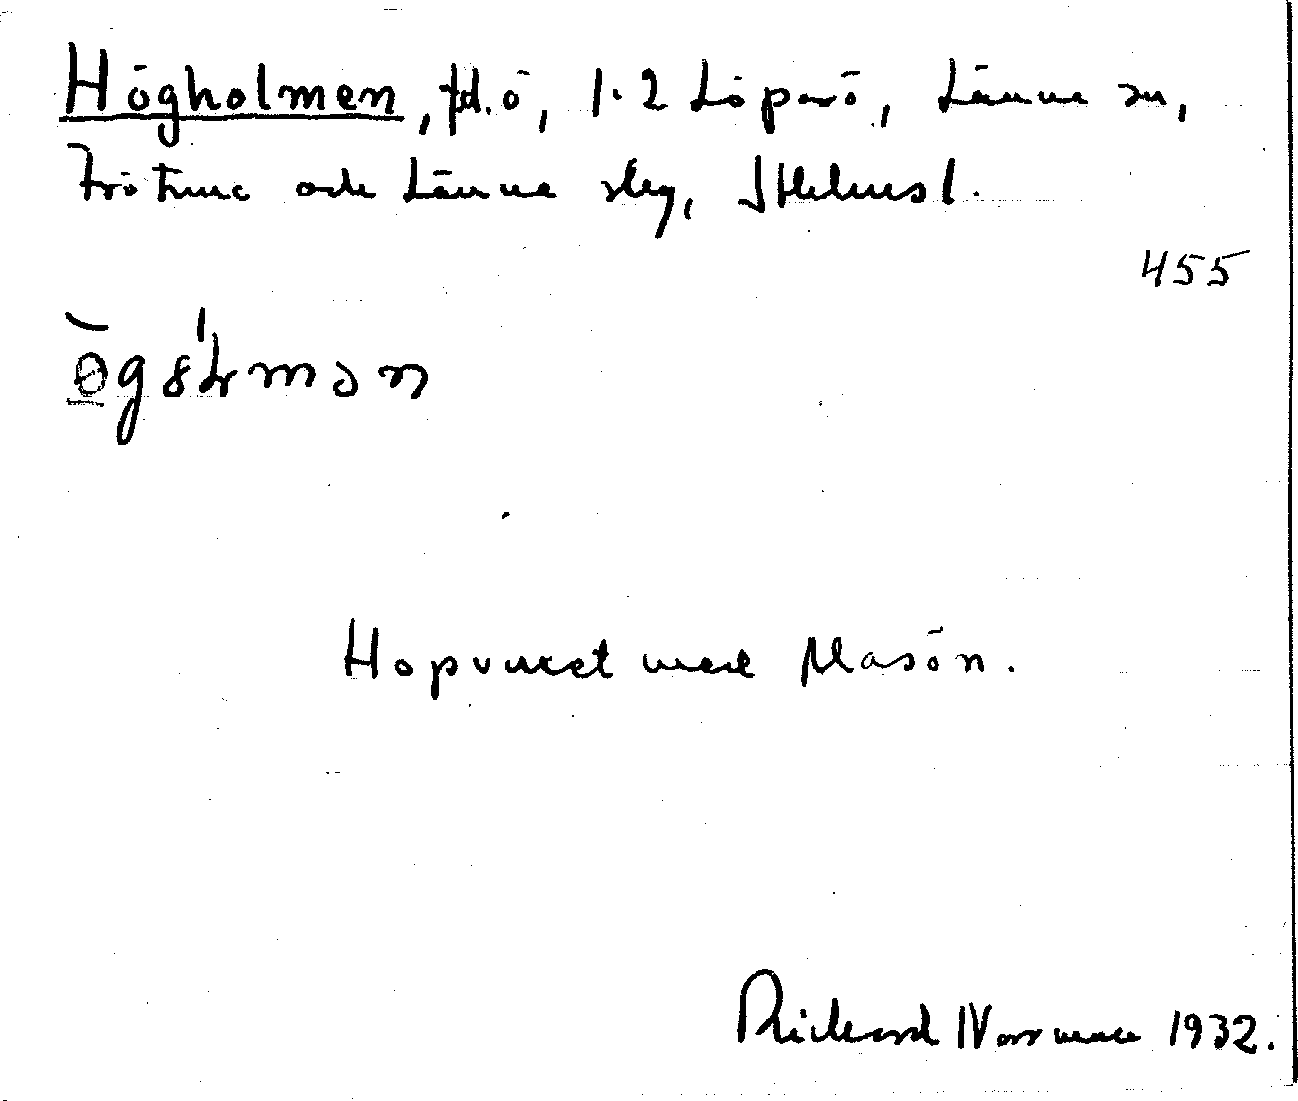 Högholmen, fd. ö, 1.2 Löparö, Länna sn,
Frötuna och Länna slg, Sthlms l.
455
ögɜ̀ɫmən
Hopvuxet med Masön.
Rickard Norrman 1932.